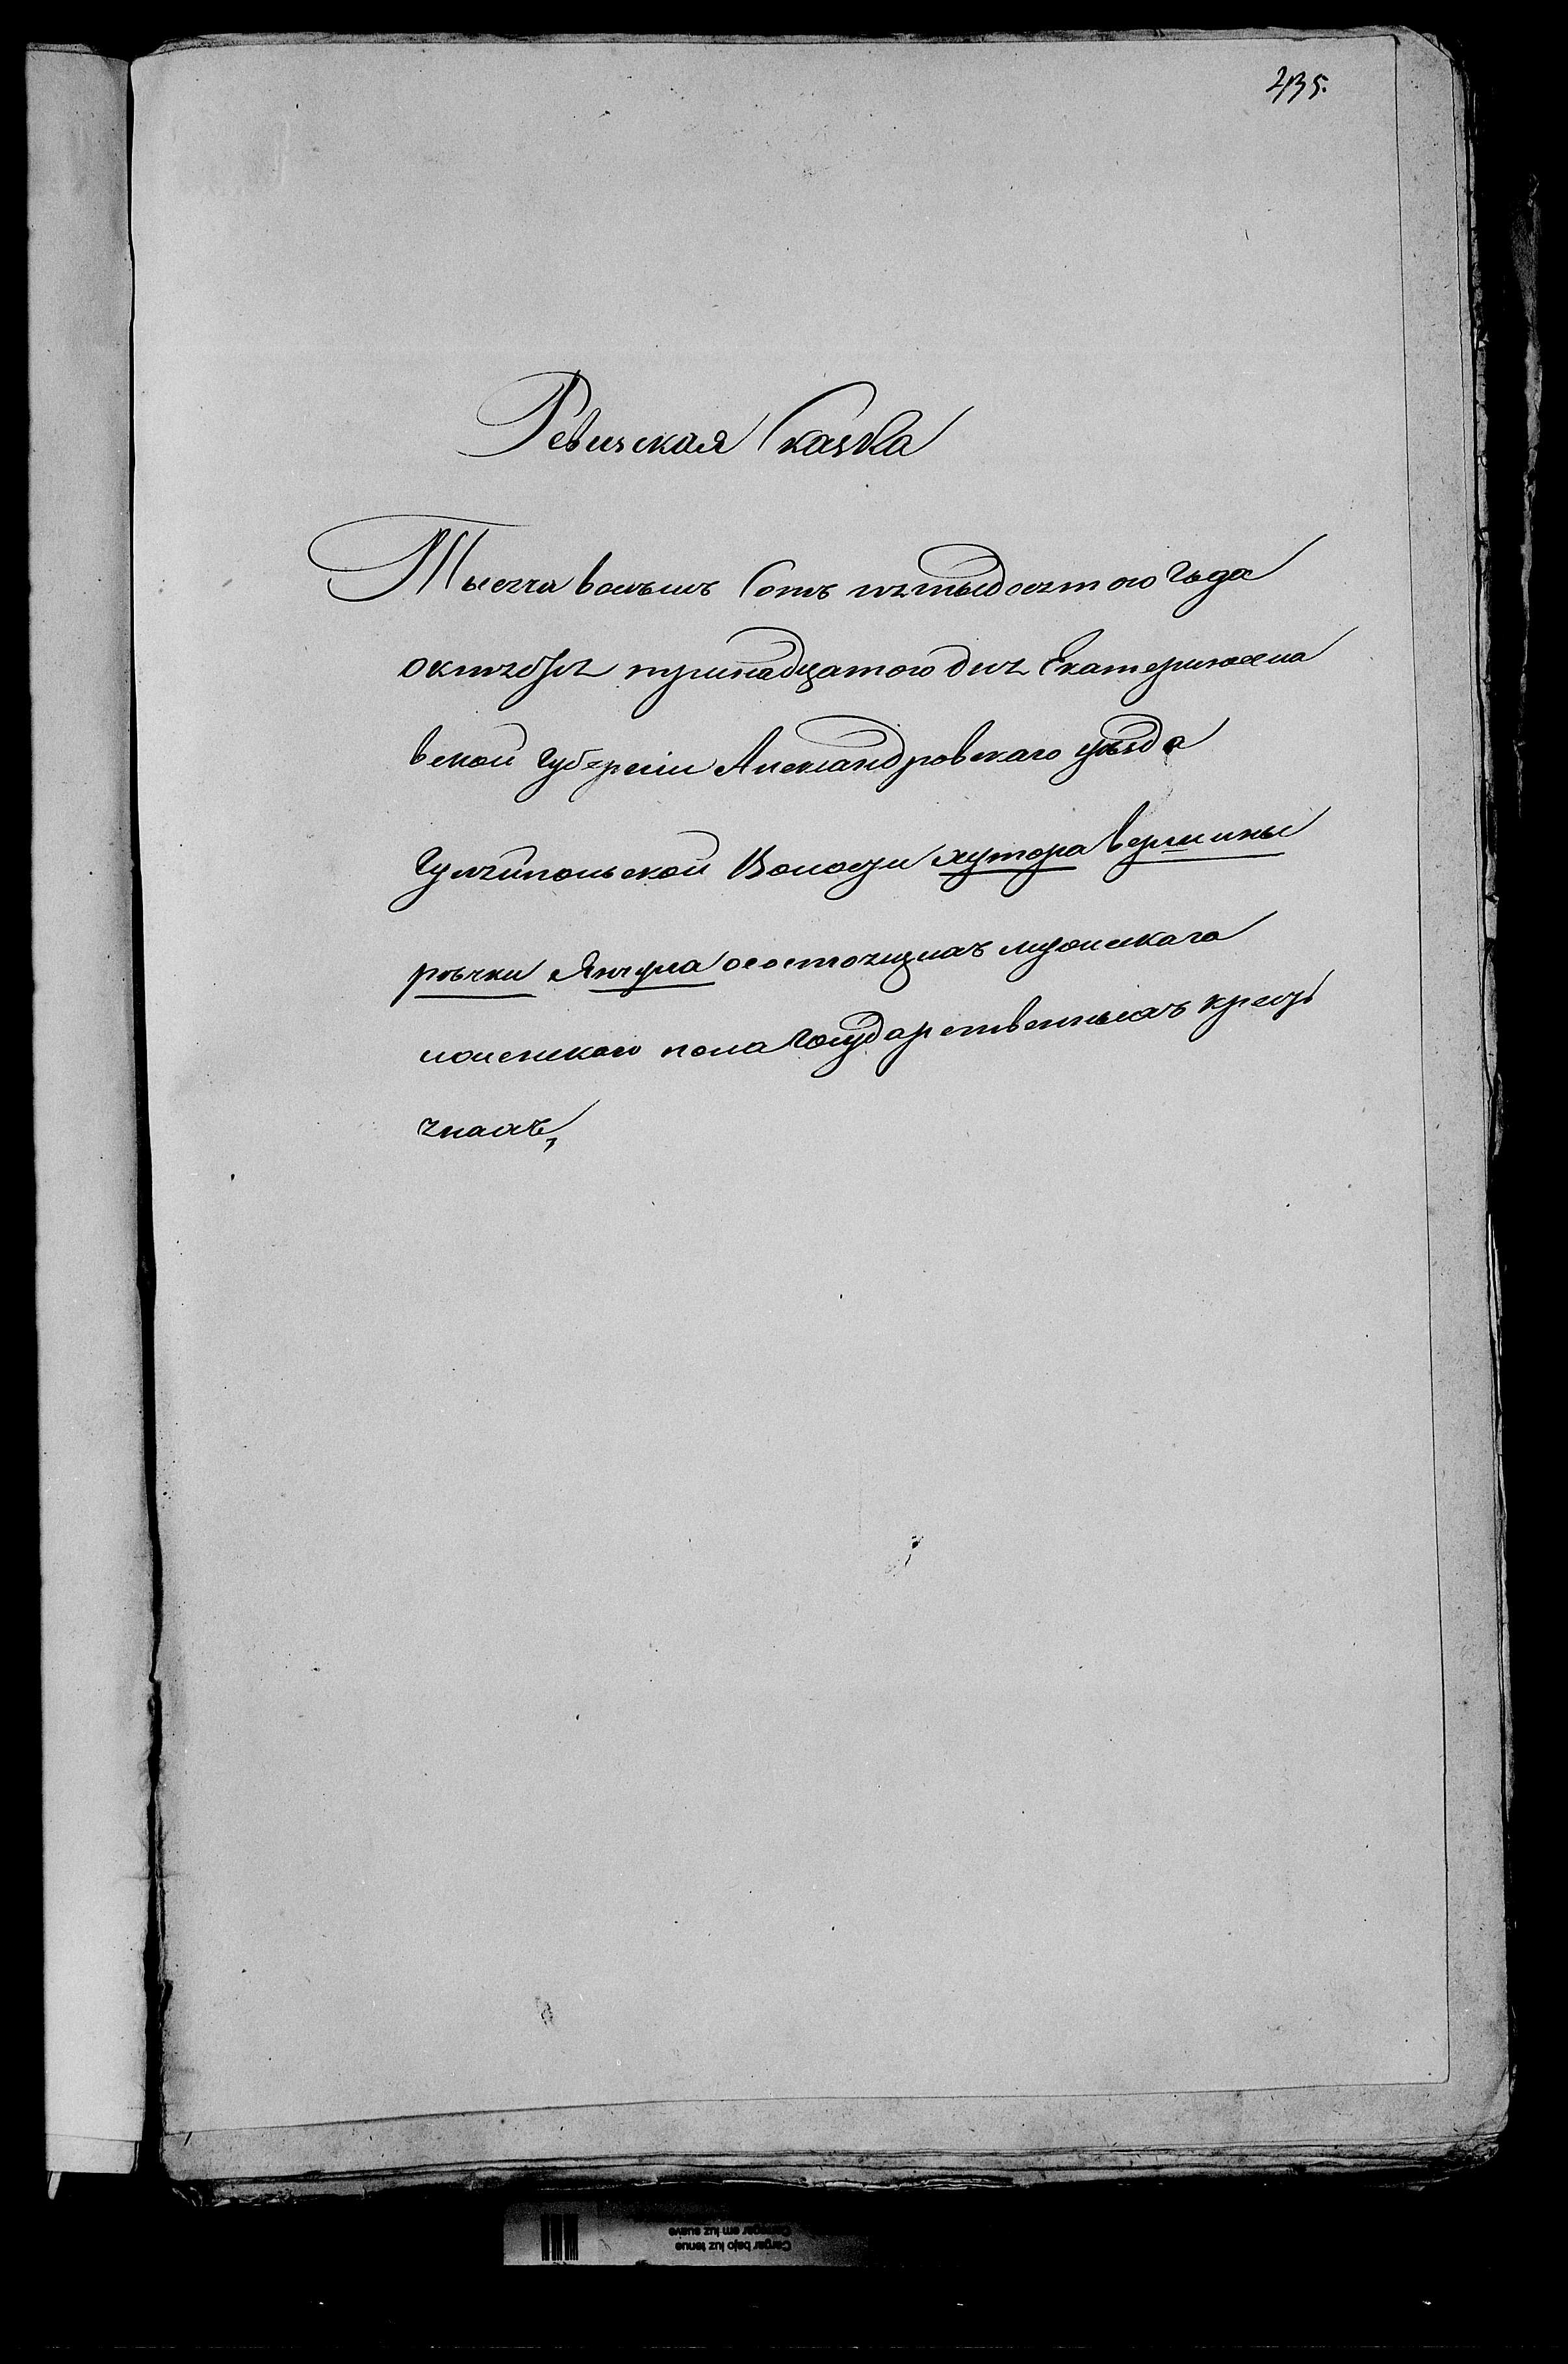 235.
Ревизская Сказка
Тысяча восъмъ Сотъ пятьдесятого Года
октября тринадцатого дня Екатериносла
вской Губерніи Александровскаго уѣзда
Гуляйпольской Волости хутора вершины
рѣчки Янчула о состоящихъ мужескаго
и женскаго пола Государственныхъ кресть
янахъ,
Cargar bajo luz tenue
Carregar em luz suave